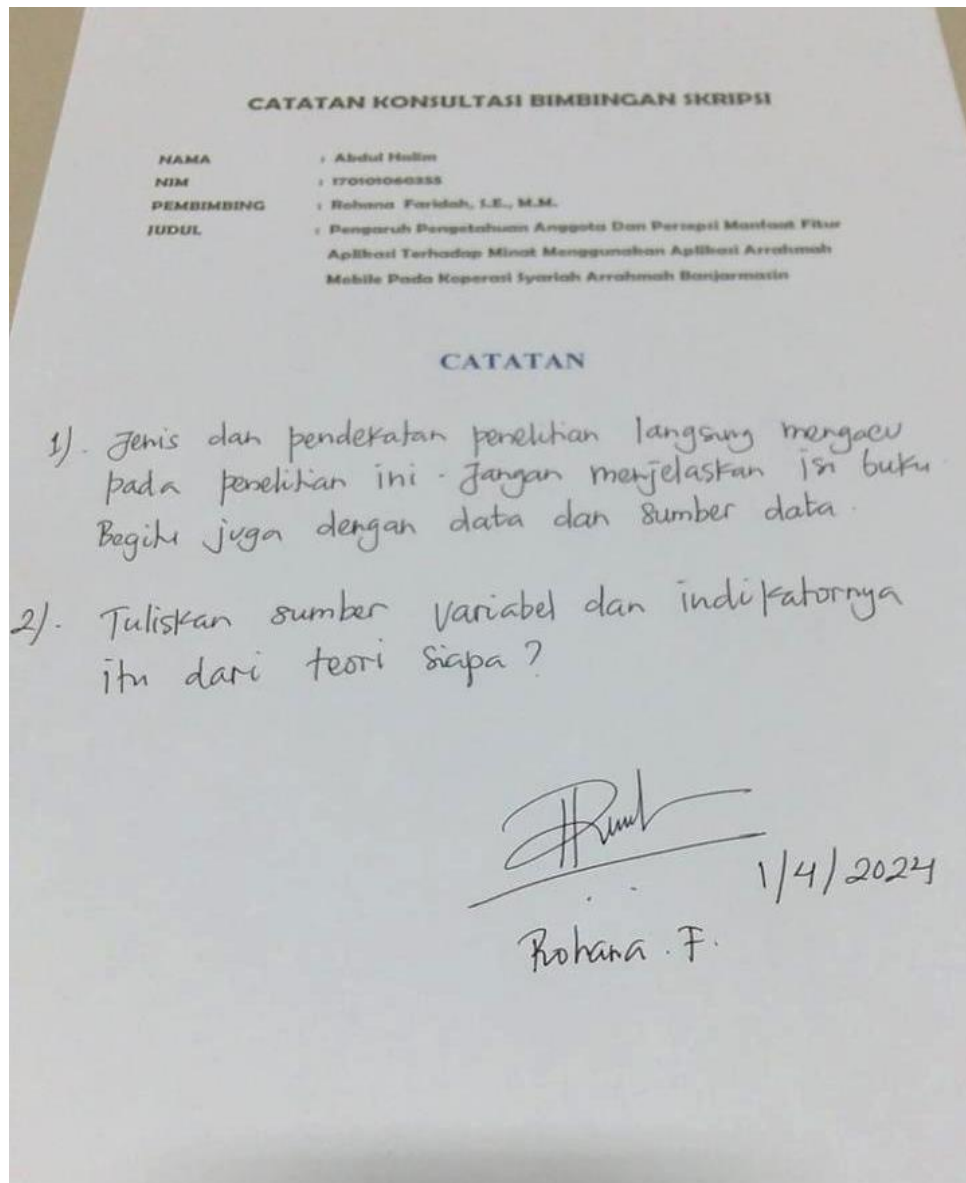 CATATAN KONSULTASI BIMBINGAN SKRIPSI
NAMA : Abdul Halim
NIM : 170101060255
PEMBIMBING : Rohana Faridah, S.E., M.M.
JUDUL : Pengaruh Pengetahuan Anggota Dan Persepsi Manfaat Fitur
Aplikasi Terhadap Minat Menggunakan Aplikasi Arrahmah
Mobile Pada Koperasi Syariah Arrahmah Banjarmasin
CATATAN
1). Jenis dan pendekatan penelitian langsung mengacu
pada penelitian ini. Jangan menjelaskan isi buku
Begitu juga dengan data dan sumber data.
2). Tuliskan sumber variabel dan indikatornya
itu dari teori siapa?
1/4/2024
Rohana. F.